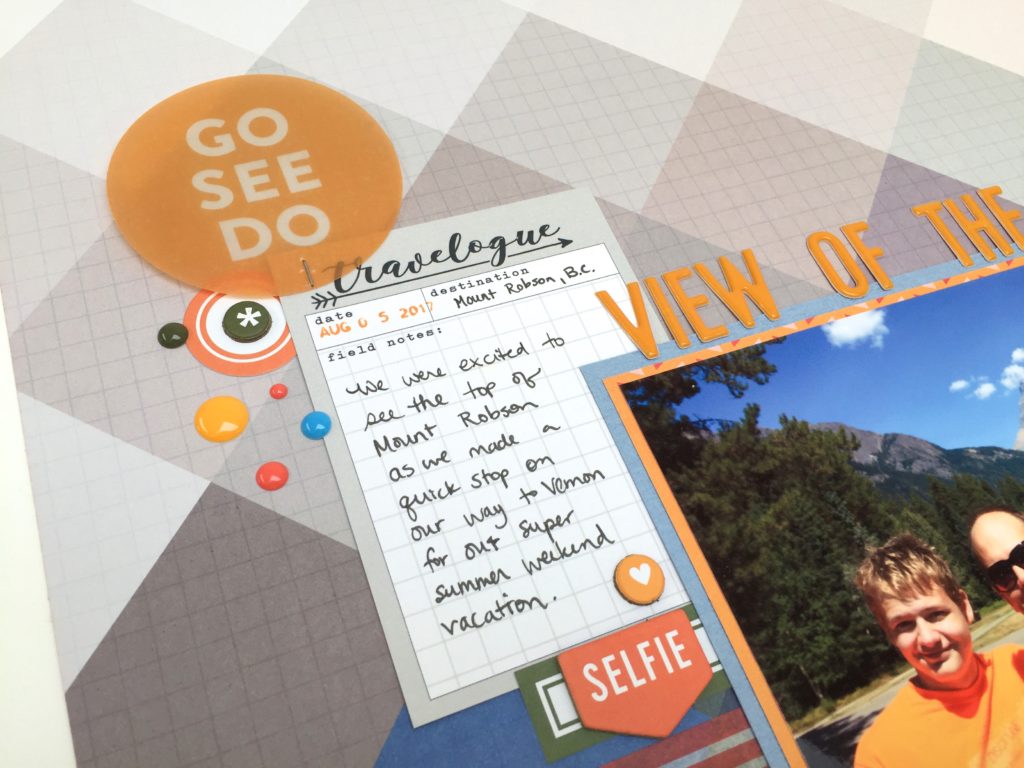 GO
SEE
DO
travelogue
date
destination
AUG 0 5 2017
Mount Robson, B.C.
field notes:
We were excited to
see the top of
Mount Robson
as we made a
quick stop on
our way to Vernon
for our super
summer weekend
vacation.
VIEW OF THE
SELFIE